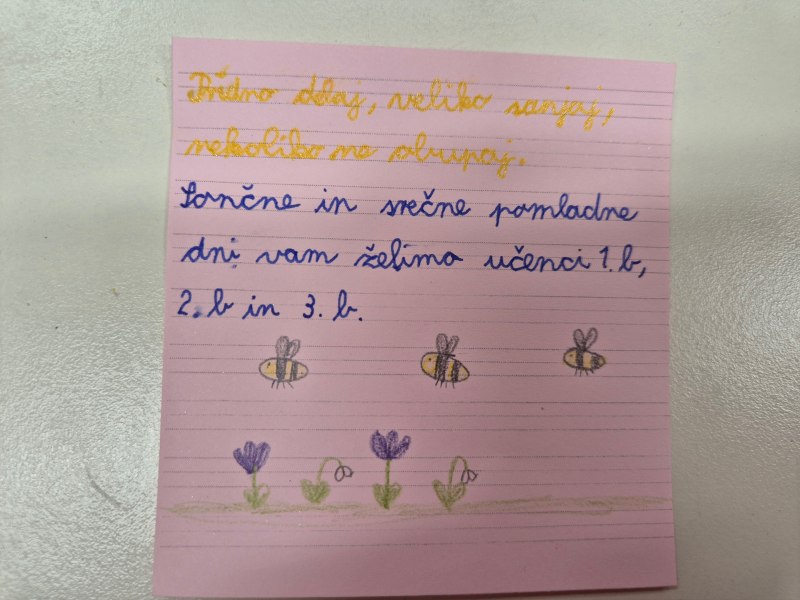 Pridno delaj, veliko sanjaj,
nekoliko ne obupaj.
Sončne in srečne pomladne
dni vam želimo učenci 1. b,
2. b in 3. b.